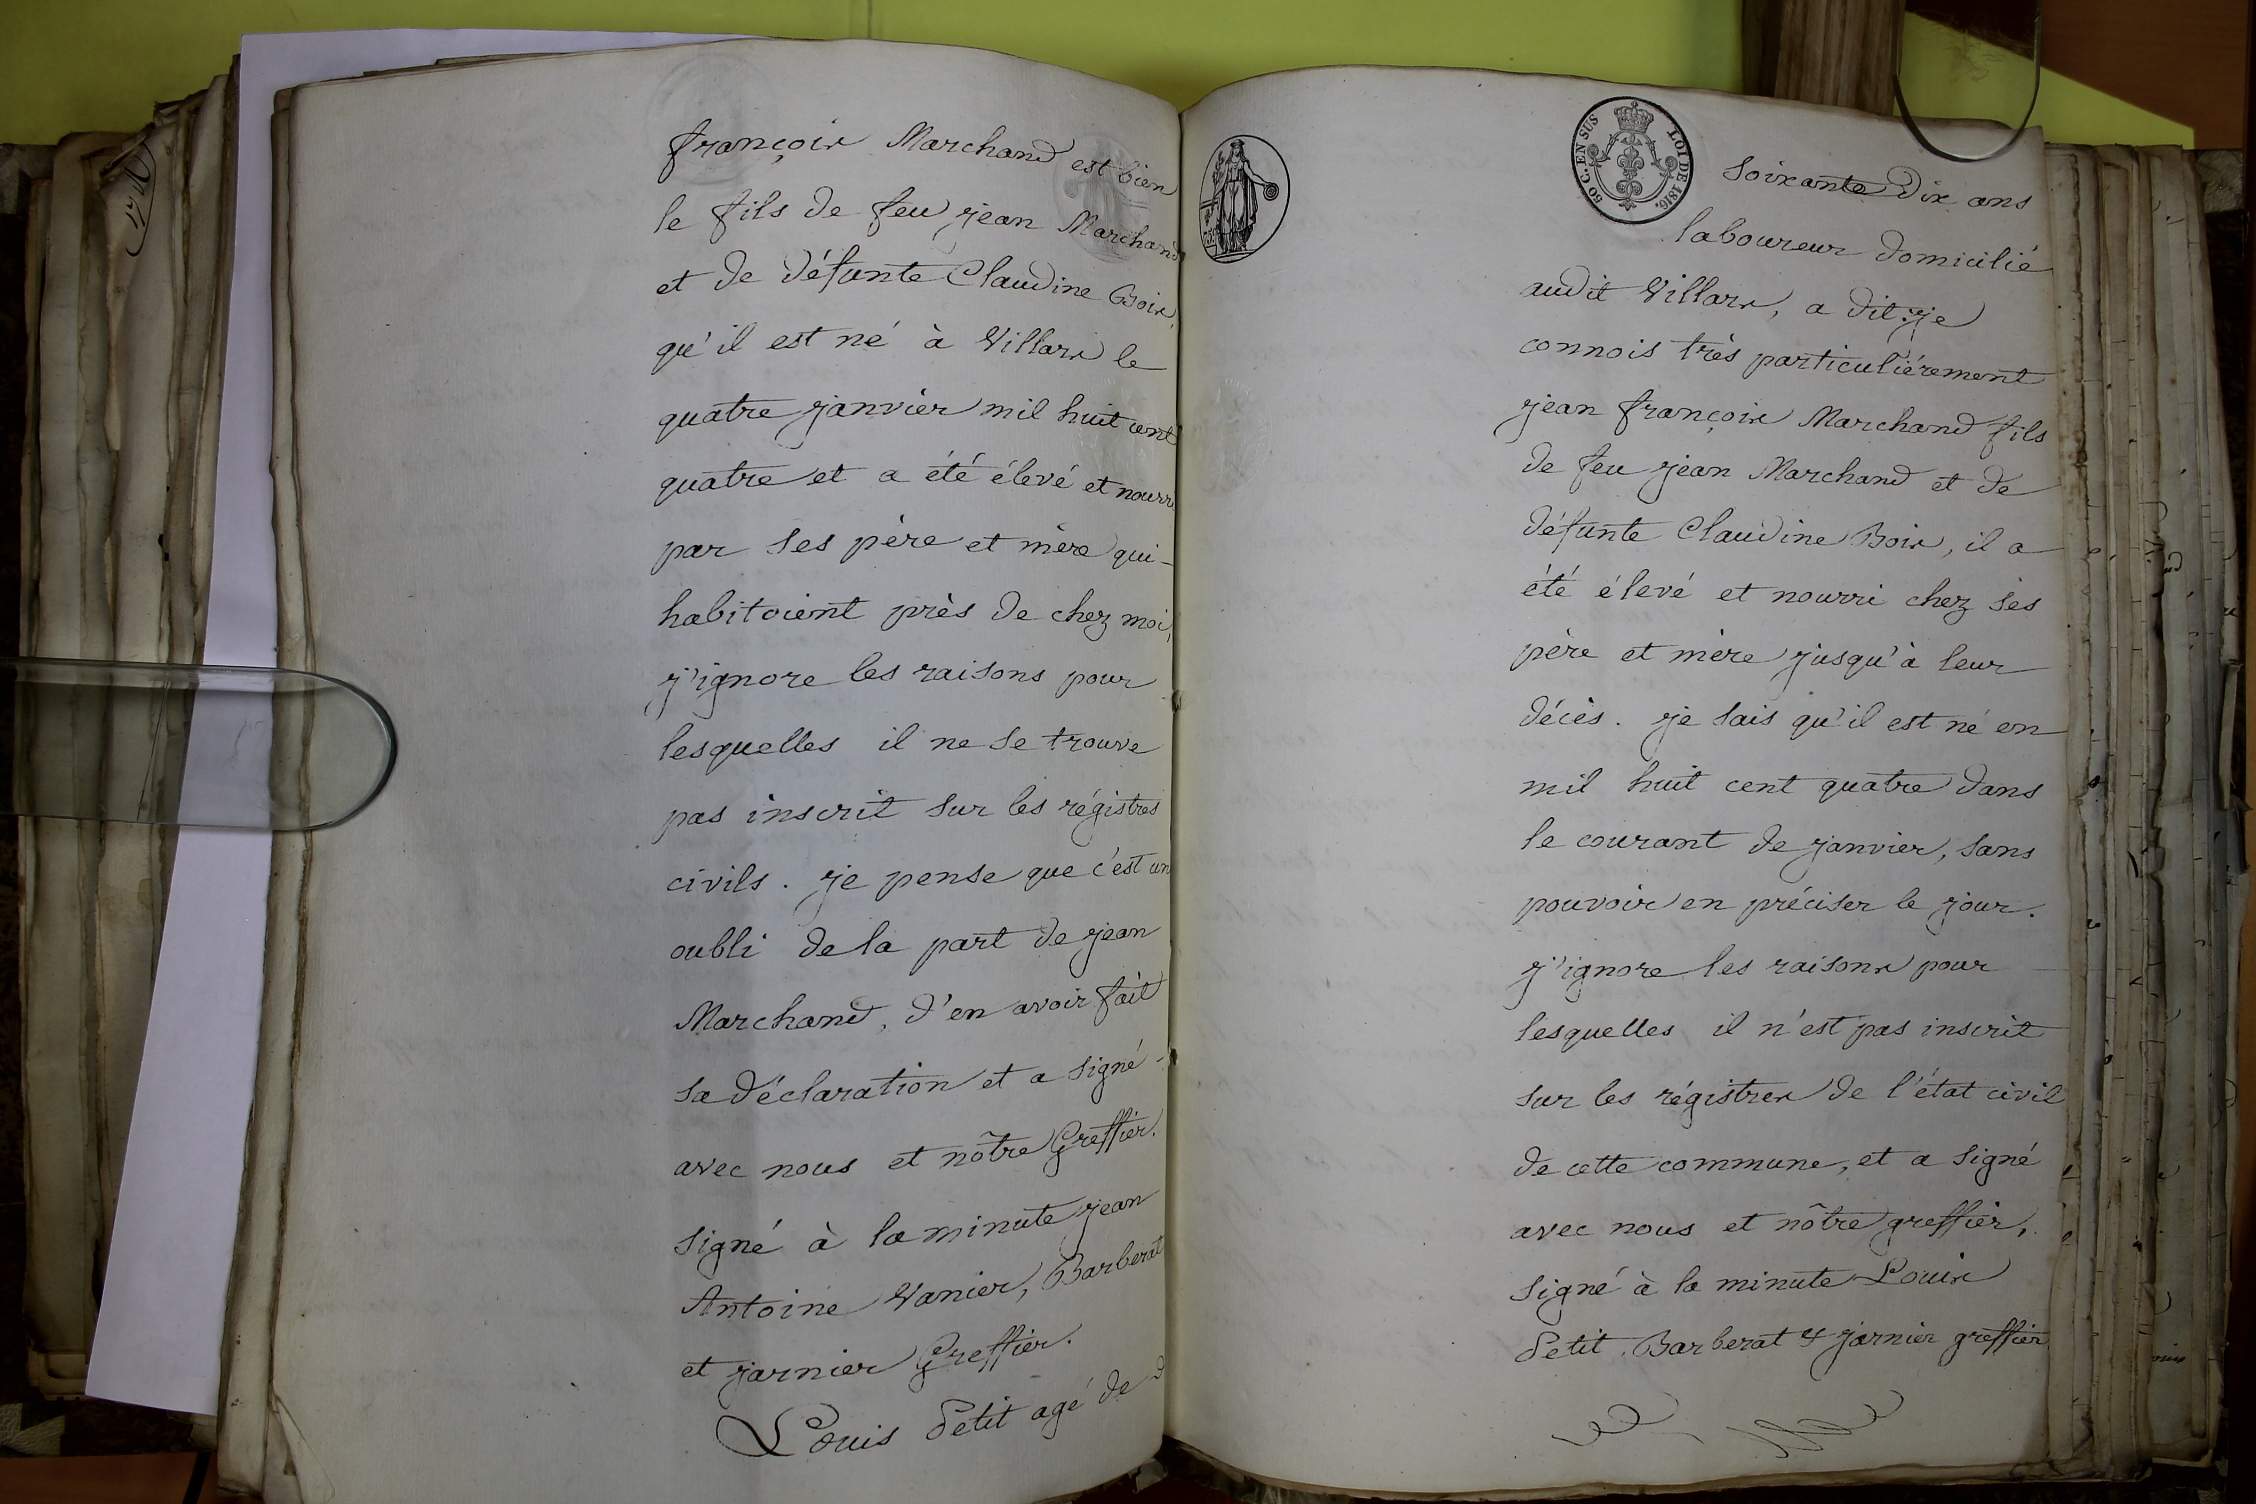 françois Marchand est bien
le fils de feu jean Marchand
et de défunte Claudine Bois,
qu'il est né à Villars le
quatre janvier mil huit cent
quatre et a été élevé et nourri
par ses père et mère qui-
habitoient près de chez moi,
j'ignore les raisons pour
lesquelles il ne se trouve
pas inscrit sur les régistres
civils. je pense que c'est un
oubli de la part de jean
Marchand, d'en avoir fait
sa déclaration et a signé-
avec nous et nôtre Greffier.
signé à la minute jean
Antoine Vanier, Barberat
et jarnier Greffier.
Louis Petit agé de
50 C. EN SUS
LOI DE 1816.
soixante Dix ans
laboureur domicilié
audit Villars, a dit: je
connois très particuliérement
jean françois Marchand fils
de feu jean Marchand et de
défunte Claudine Bois, il a
été élevé et nourri chez ses
père et mère jusqu'à leur
décès. je sais qu'il est né en
mil huit cent quatre dans
le courant de janvier, sans
pouvoir en préciser le jour.
j'ignore les raisons pour
lesquelles il n'est pas inscrit
sur les régistres de l'état civil
de cette commune, et a signé
avec nous et nôtre greffier,
signé à la minute Louis
Petit, Barberat & jarnier greffier